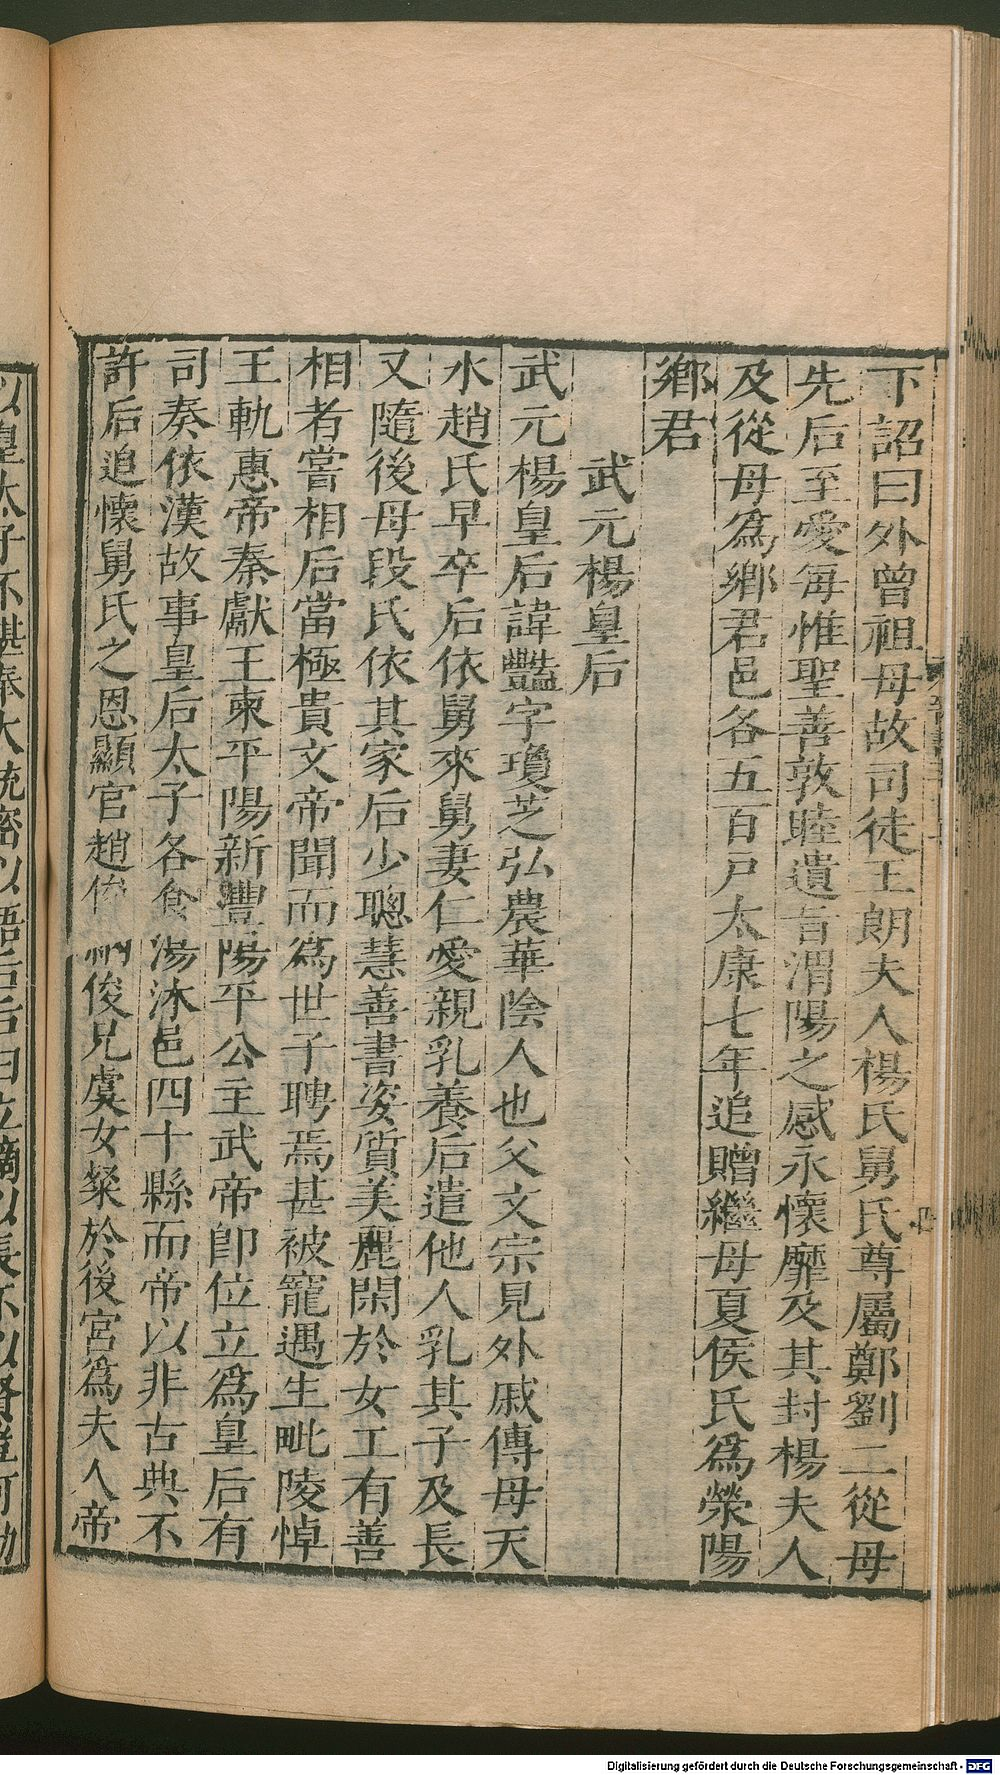 下詔曰外曾祖母故司徒王朗夫人楊氏舅氏尊屬鄭劉二從母
先后至愛每惟聖善敦睦遺旨渭陽之感永懷靡及其封楊夫人
及從母爲鄉君邑各五百戶太康七年追贈繼母夏侯氏爲滎陽
鄉君
武元楊皇后
武元楊皇后諱豔字瓊芝弘農華陰人也父文宗見外戚傳母天
水趙氏早卒后依舅來舅妻仁愛親乳養后遣他人乳其子及長
又隨後母段氏依其家后少聰慧善書姿質美麗閑於女工有善
相者嘗相后當極貴文帝聞而爲世子聘焉甚被寵遇生毗陵悼
王軌惠帝秦獻王柬平陽新豐陽平公主武帝卽位立爲皇后有
司奏依漢故事皇后太子各食湯沐邑四十縣而帝以非古典不
許后追懷舅氏之恩顯官趙俊俊兄虞女粲於後宮爲夫人帝
以皇太子不堪奉大統密以語后后曰立嫡以長不以賢豈可動
Digitalisierung gefördert durch die Deutsche Forschungsgemeinschaft - DFG